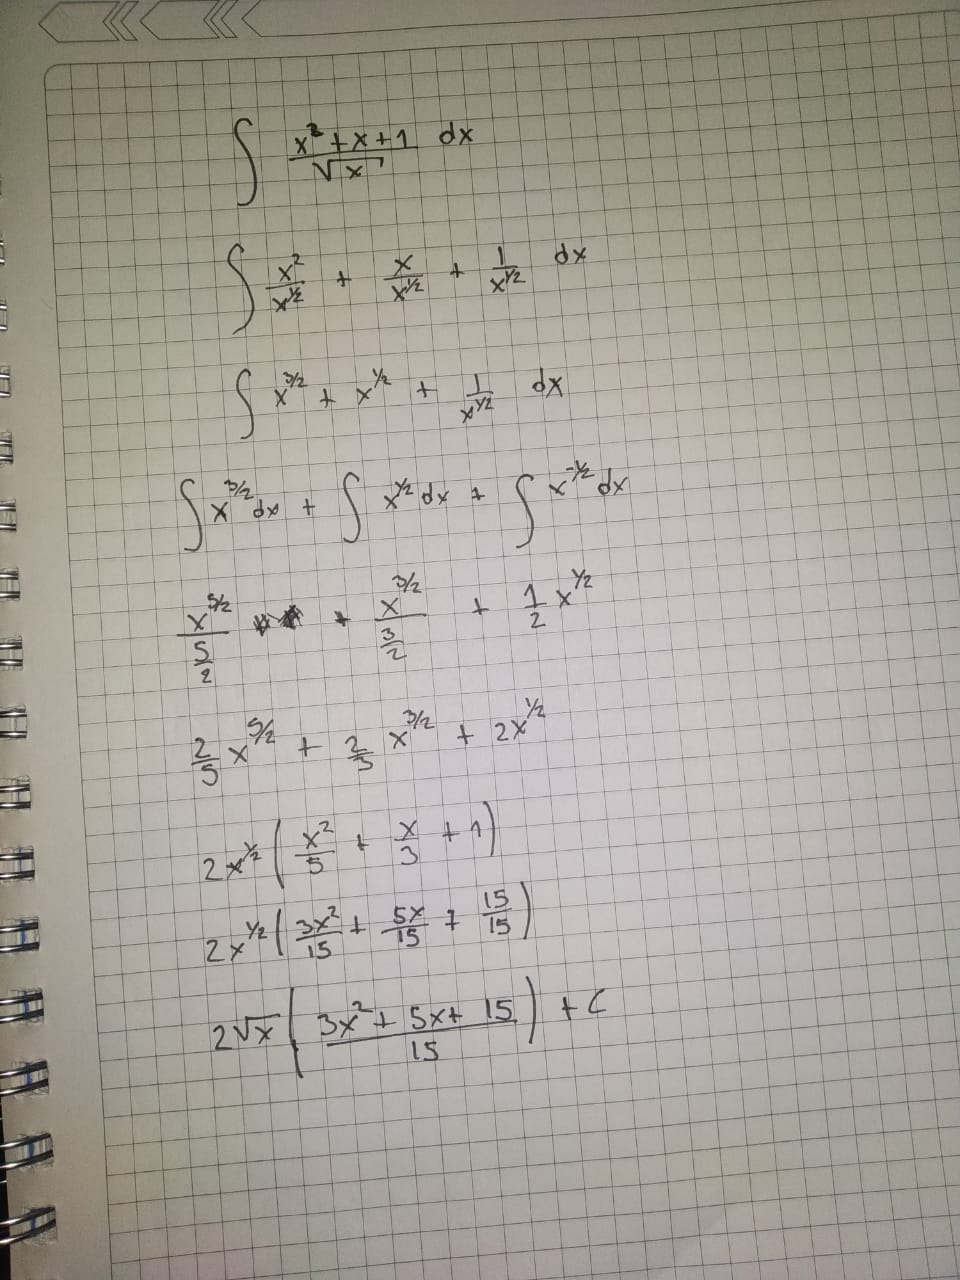 ∫ (x² + x + 1)/√x dx
∫ x²/x^(1/2) + x/x^(1/2) + 1/x^(1/2) dx
∫ x^(3/2) + x^(1/2) + 1/x^(1/2) dx
∫ x^(3/2) dx + ∫ x^(1/2) dx + ∫ x^(-1/2) dx
x^(5/2)/(5/2) + x^(3/2)/(3/2) + 1/2 x^(1/2)
2/5 x^(5/2) + 2/3 x^(3/2) + 2x^(1/2)
2x^(1/2) (x²/5 + x/3 + 1)
2x^(1/2) (3x²/15 + 5x/15 + 15/15)
2√x ((3x² + 5x + 15)/15) + C